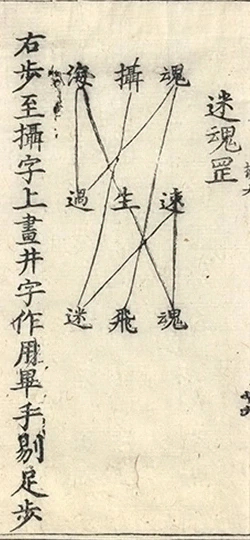 迷魂罡
魂 攝 海
速 生 過
魂 飛 迷
右步至攝字上畫井字作用畢手剔足步